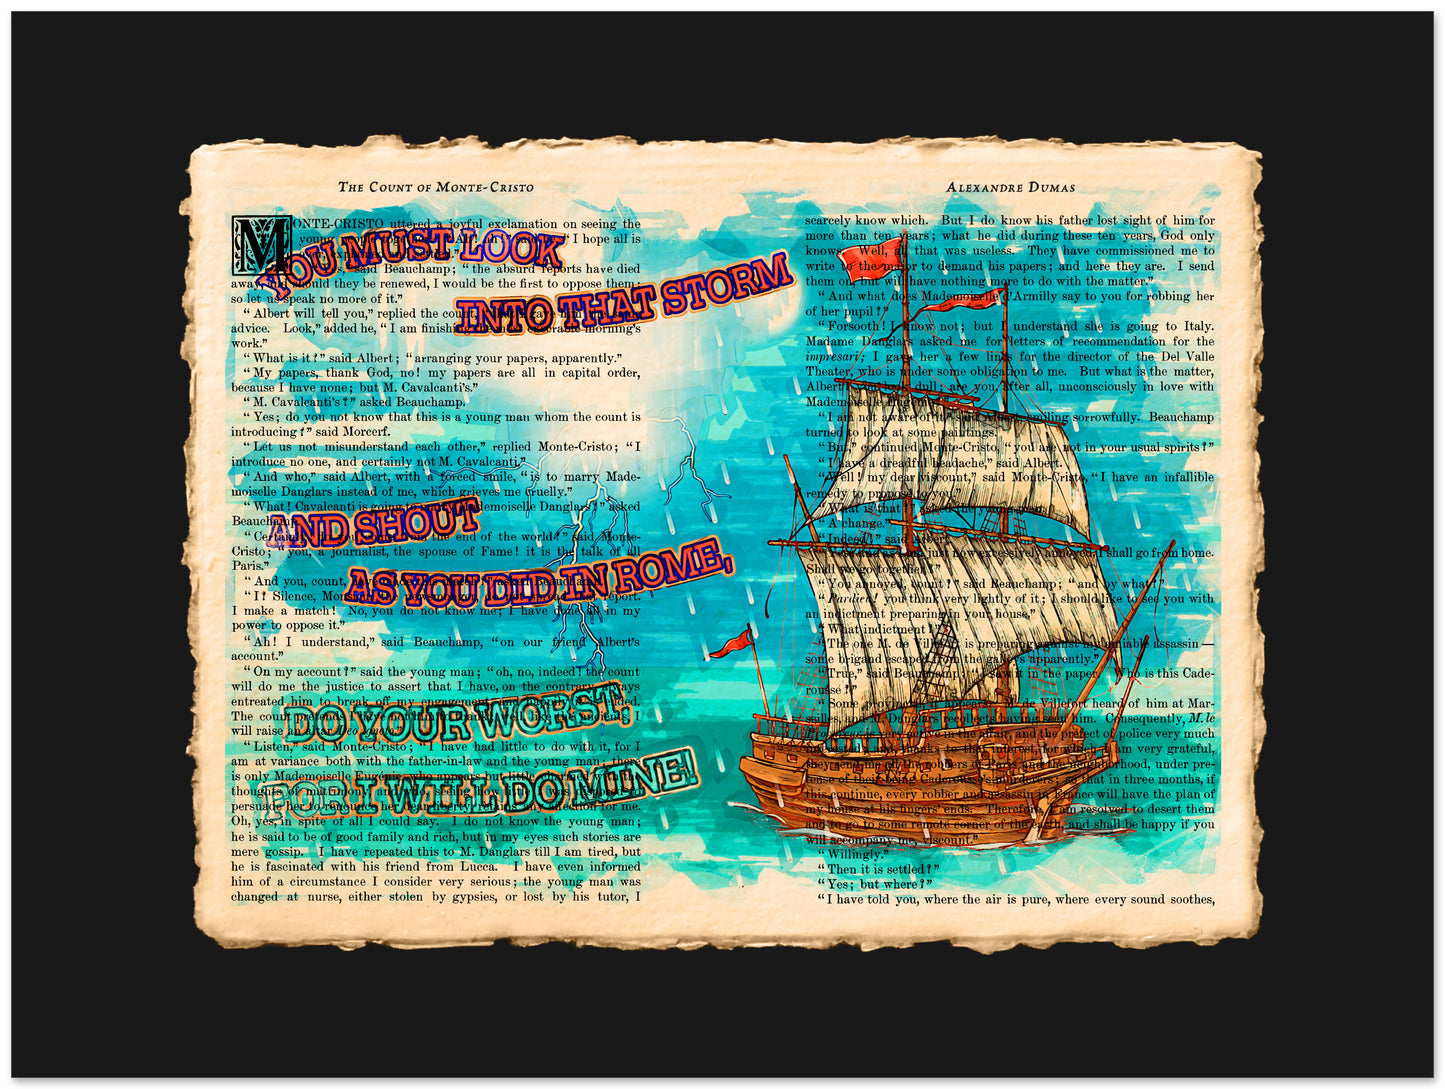 THE COUNT OF MONTE-CRISTO
ALEXANDRE DUMAS
YOU MUST LOOK
INTO THAT STORM
AND SHOUT
AS YOU DID IN ROME,
DO YOUR WORST,
FOR I WILL DO MINE!
MONTE-CRISTO uttered a joyful exclamation on seeing the
young “I hope all is
said Beauchamp; “the absurd reports have died
away, and should they be renewed, I would be the first to oppose them;
so let us speak no more of it.”
“Albert will tell you,” replied the count,
advice. Look,” added he, “I am finishing morning's
work.”
“What is it?” said Albert; “arranging your papers, apparently.”
“My papers, thank God, no! my papers are all in capital order,
because I have none; but M. Cavalcanti's.”
“M. Cavalcanti's?” asked Beauchamp.
“Yes; do you not know that this is a young man whom the count is
introducing?” said Morcerf.
“Let us not misunderstand each other,” replied Monte-Cristo; “I
introduce no one, and certainly not M. Cavalcanti.”
“And who,” said Albert, with a forced smile, “is to marry Made-
moiselle Danglars instead of me, which grieves me cruelly.”
“What! Cavalcanti is going to marry Mademoiselle Danglars?” asked
Beauchamp.
“Certainly the end of the world?” said Monte-
Cristo; “you, a journalist, the spouse of Fame! it is the talk of all
Paris.”
“And you, count, have made this match?” asked Beauchamp.
“I? Silence, report.
I make a match! No, you do not know me; I have done all in my
power to oppose it.”
“Ah! I understand,” said Beauchamp, “on our friend Albert's
account.”
“On my account?” said the young man; “oh, no, indeed! the count
will do me the justice to assert that I have, on the contrary, always
entreated him to break off my engagement, ended.
The count pretends I
will raise an altar Deo ignoto.”
“Listen,” said Monte-Cristo; “I have had little to do with it, for I
am at variance both with the father-in-law and the young man; there
is only Mademoiselle Eugénie, who appears but little charmed with the
thoughts of matrimony, and who, seeing how little I was disposed to
persuade her to renounce her dear liberty, retains any affection for me.
Oh, yes, in spite of all I could say. I do not know the young man;
he is said to be of good family and rich, but in my eyes such stories are
mere gossip. I have repeated this to M. Danglars till I am tired, but
he is fascinated with his friend from Lucca. I have even informed
him of a circumstance I consider very serious; the young man was
changed at nurse, either stolen by gypsies, or lost by his tutor, I
scarcely know which. But I do know his father lost sight of him for
more than ten years; what he did during these ten years, God only
knows. Well, all that was useless. They have commissioned me to
write to the major to demand his papers; and here they are. I send
them on, but will have nothing more to do with the matter.”
“And what does Mademoiselle d'Armilly say to you for robbing her
of her pupil?”
“Forsooth! I know not; but I understand she is going to Italy.
Madame Danglars asked me for letters of recommendation for the
impresari; I gave her a few lines for the director of the Del Valle
Theater, who is under some obligation to me. But what is the matter,
Albert? you look dull; are you, after all, unconsciously in love with
Mademoiselle Eugénie?”
“I am not aware of it,” said Albert, smiling sorrowfully. Beauchamp
turned to look at some paintings.
“But,” continued Monte-Cristo, “you are not in your usual spirits?”
“I have a dreadful headache,” said Albert.
“Well! my dear viscount,” said Monte-Cristo, “I have an infallible
remedy to propose to you.”
“What is that?” asked the young man.
“A change.”
“Indeed!” said Albert.
“Yes; and as I am just now excessively annoyed, I shall go from home.
Shall we go together?”
“You annoyed, count?” said Beauchamp; “and by what?”
“Pardieu! you think very lightly of it; I should like to see you with
an indictment preparing in your house.”
“What indictment?”
“The one M. de Villefort is preparing against my amiable assassin—
some brigand escaped from the galleys apparently.”
“True,” said Beauchamp; “I saw it in the paper. Who is this Cade-
rousse?”
“Some provincial, it appears. M. de Villefort heard of him at Mar-
seilles, and M. Danglars recollects having seen him. Consequently, M. le
Procureur is very active in the affair, and the prefect of police very much
interested; and, thanks to that interest, for which I am very grateful,
they send me all the robbers of Paris and the neighborhood, under pre-
tense of their being Caderousse's murderers; so that in three months, if
this continue, every robber and assassin in France will have the plan of
my house at his fingers' ends. Therefore, I am resolved to desert them
and to go to some remote corner of the earth, and shall be happy if you
will accompany me, viscount.”
“Willingly.”
“Then it is settled?”
“Yes; but where?”
“I have told you, where the air is pure, where every sound soothes,